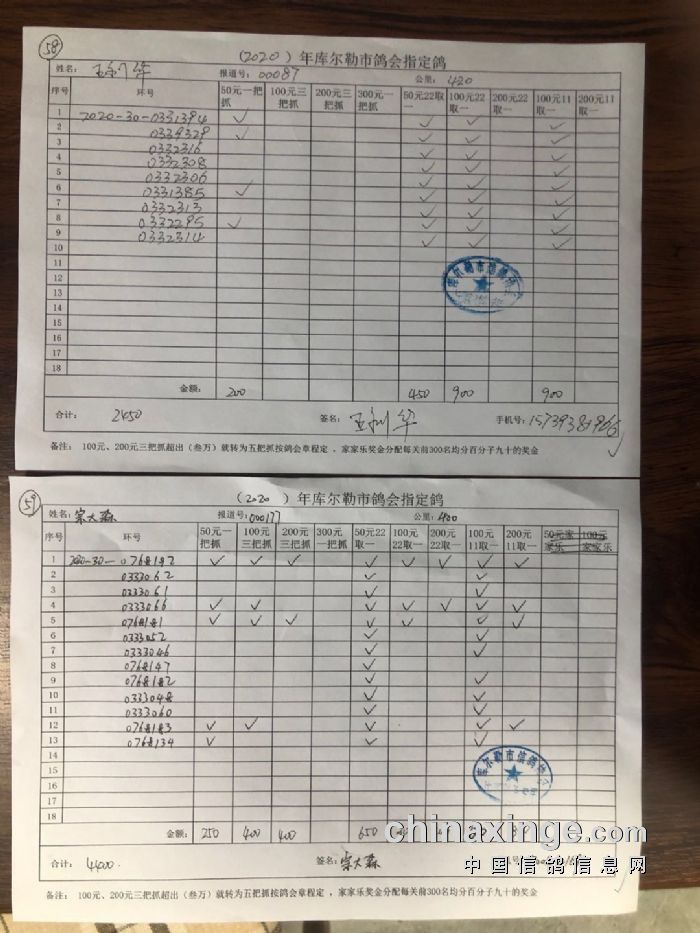 58
(2020) 年库尔勒市鸽会指定鸽
姓名: 报道号: 00087 公里: 420
序号 环号 50元一把抓 100元三把抓 200元三把抓 300元一把抓 50元22取一 100元22取一 200元22取一 100元11取一 200元11取一
1 2020-30-0331394 ✓ ✓ ✓ ✓
2 0339329 ✓ ✓ ✓ ✓
3 0332316 ✓ ✓ ✓
4 0332308 ✓ ✓ ✓
5 0332306 ✓ ✓ ✓
6 0331385 ✓ ✓ ✓ ✓
7 0332313 ✓ ✓ ✓
8 0332295 ✓ ✓ ✓ ✓
9 0332314 ✓ ✓ ✓
10
11
12
13
14
15
16
17
18
金额: 200 450 900 900
合计: 2450 签名: 手机号:
备注: 100元、200元三把抓超出(叁万)就转为五把抓按鸽会章程定,家家乐奖金分配每关前300名均分百分子九十的奖金
库尔勒市信鸽协会
59
(2020) 年库尔勒市鸽会指定鸽
姓名: 宗大森 报道号: 000177 公里: 400
序号 环号 50元一把抓 100元三把抓 200元三把抓 300元一把抓 50元22取一 100元22取一 200元22取一 100元11取一 200元11取一 50元家家乐 100元家家乐
1 0768192 ✓ ✓ ✓ ✓ ✓ ✓ ✓ ✓
2 0333062 ✓ ✓
3 0333061 ✓ ✓
4 0333066 ✓ ✓ ✓ ✓ ✓ ✓ ✓
5 0768181 ✓ ✓ ✓ ✓ ✓ ✓ ✓
6 0333052 ✓ ✓
7 0333046 ✓ ✓
8 0768147 ✓
9 0768182 ✓ ✓
10 0333048 ✓ ✓
11 0333060 ✓ ✓
12 0768183 ✓ ✓ ✓ ✓ ✓
13 0768134 ✓ ✓ ✓
14
15
16
17
18
库尔勒市信鸽协会
金额: 250 400 400 650
合计: 4400 签名: 宗大森
备注: 100元、200元三把抓超出(叁万)就转为五把抓按鸽会章程定,家家乐奖金分配每关前300名均分百分子九十的奖金
chinaxinge.com
中国信鸽信息网